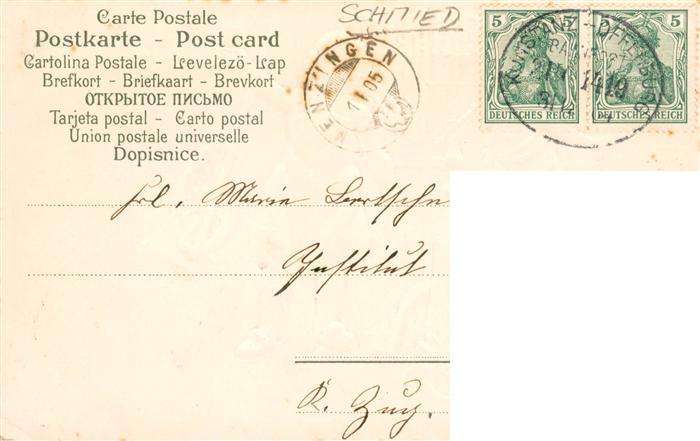 Carte Postale
Postkarte - Post card
Cartolina Postale - Levelezö-Lap
Brefkort - Briefkaart - Brevkort
ОТКРЫТОЕ ПИСЬМО
Tarjeta postal - Carto postal
Union postale universelle
Dopisnice.
SCHMIED
MENZINGEN
1 I 05
5 5
DEUTSCHES REICH
5 5
DEUTSCHES REICH
KONSTANZ - OFFENBURG
BAHNPOST
ZUG 1419
Frl. Marie
Institut
K. Zug.